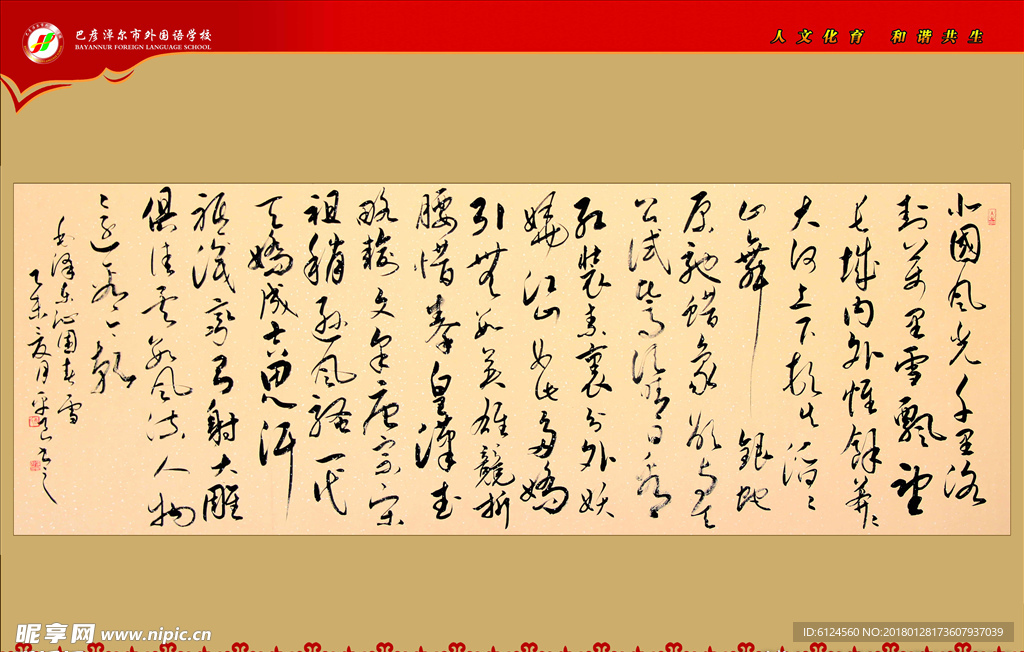 巴彦淖尔市外国语学校
BAYANNUR FOREIGN LANGUAGE SCHOOL
人文化育 和谐共生
北國風光千里冰
封萬里雪飄望
長城内外惟餘莽〻
大河上下頓失滔〻
山舞銀地
原馳蜡象欲与天
公試比高須晴日看
紅裝素裹分外妖
嬈江山如此多嬌
引無數英雄競折
腰惜秦皇漢武
略輸文采唐宗宋
祖稍遜風騷一代
天嬌成吉思汗
祗識彎弓射大雕
俱往矣數風流人物
還看今朝
毛澤東沁園春雪
乙未夏月
昵享网 www.nipic.cn
ID:6124560 NO:20180128173607937039